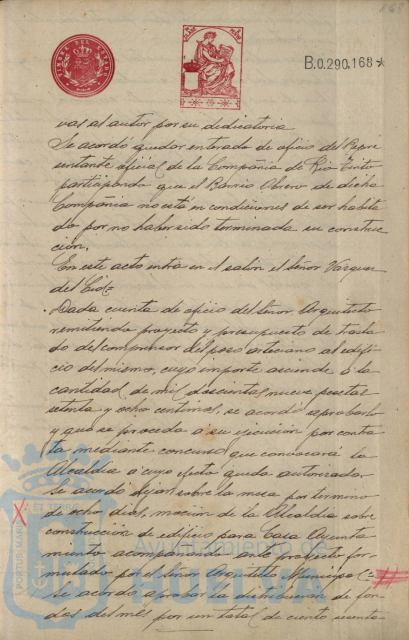 B.0.290.168*
vas al autor por su dedicatoria.
Se acordó quedar enterado de oficio del Repre
sentante oficial de la Compañia de Rio Tinto
participando que el Barrio Obrero de dicha
Compañia no está en condiciones de ser habita
do por no haber sido terminada su construc
ción.
En este acto entra en el salón el Señor Vázquez
del Cid
Dada cuenta de oficio del Señor Arquitecto
remitiendo proyecto y presupuesto de trasla
do del compresor del pozo artesiano al edifi
cio del mismo, cuyo importe asciende á la
cantidad de mil doscientas nueve pesetas
setenta y ocho centimos, se acordó aprobarlo
y que se proceda á su ejecución por contra
ta mediante concurso que convocará la
Alcaldia á cuyo efecto queda autorizada
Se acordó dejar sobre la mesa por termino
de ocho dias, moción de la Alcaldia sobre
construcción de edificio para Casa Ayunta
miento acompañada ante proyecto for
mulado por el Señor Arquitecto Municipal
Se acordó aprobar la distribución de fon
dos del mes por un total de ciento
Ayuntamiento de
HUELVA